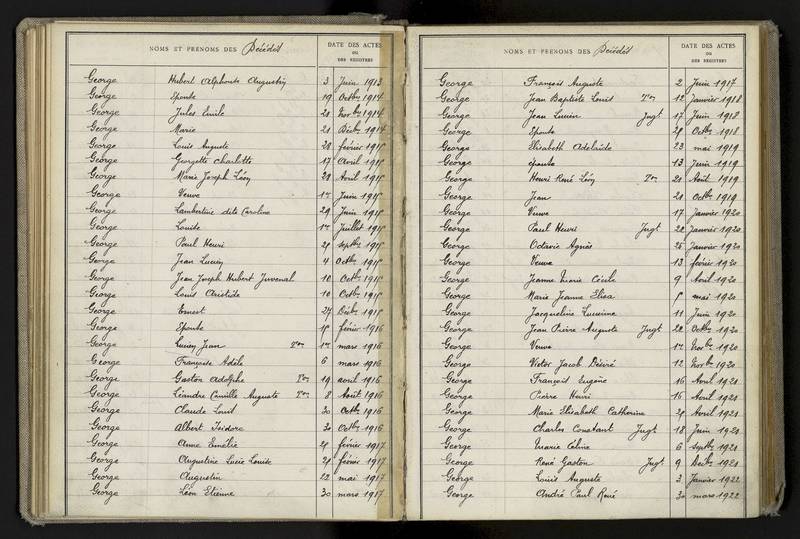 NOMS ET PRÉNOMS DES Décédés
DATE DES ACTES
OU
DES REGISTRES
George Hubert Alphonse Augustin 3 Juin 1913
George Epouse 19 Octbre 1914
George Jules Emile 21 Novbre 1914
George Marie 21 Décbre 1914
George Louis Auguste 28 février 1915
George Georgette Charlotte 17 Avril 1915
George Marie Joseph Léon 28 Avril 1915
George Veuve 1er Juin 1915
George Lambertine dite Caroline 29 Juin 1915
George Louise 1er Juillet 1915
George Paul Henri 25 Septbre 1915
George Jean Lucien 4 Octbre 1915
George Jean Joseph Hubert Juvenal 10 Octbre 1915
George Louis Aristide 10 Octbre 1915
George Ernest 27 Décbre 1915
George Epouse 15 février 1916
George Lucien Jean Ton 1er mars 1916
George Françoise Adèle 6 mars 1916
George Gaston Adolphe Ton 19 avril 1916
George Léandre Camille Auguste Ton 8 Août 1916
George Claude Louis 30 Octbre 1916
George Albert Isidore 30 Octbre 1916
George Anne Emélie 25 février 1917
George Augustine Lucie Louise 25 février 1917
George Augustin 22 mai 1917
George Léon Etienne 30 mars 1917
NOMS ET PRÉNOMS DES Décédés
DATE DES ACTES
OU
DES REGISTRES
George François Auguste 2 Juin 1917
George Jean Baptiste Louis Ton 12 Janvier 1918
George Jean Lucien Jugt 17 Juin 1918
George Epouse 25 Octbre 1918
George Elisabeth Adelaide 23 mai 1919
George épouse 13 Juin 1919
George Henri René Léon Ton 21 Août 1919
George Jean 21 Octbre 1919
George Veuve 17 Janvier 1920
George Paul Henri Jugt 22 Janvier 1920
George Octavie Agnès 25 Janvier 1920
George Veuve 13 février 1920
George Jeanne Marie Cécile 9 Avril 1920
George Marie Jeanne Elisa 5 mai 1920
George Jacqueline Lucienne 11 Juin 1920
George Jean Pierre Auguste Jugt 22 Octbre 1920
George Veuve 1er Novbre 1920
George Victor Jacob Désiré 12 Novbre 1920
George François Eugène 16 Avril 1921
George Pierre Henri 16 Avril 1921
George Marie Elisabeth Catherine 25 Avril 1921
George Charles Constant Jugt 18 Juin 1921
George Marie Céline 6 Septbre 1921
George René Gaston Jugt 9 Décbre 1921
George Louis Auguste 3 Janvier 1922
George André Paul René 30 mars 1922